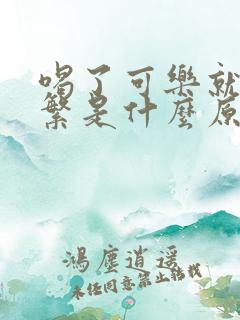 喝了可樂就
繁是什麼原
鴻塵逍遥
未经同意禁止转载